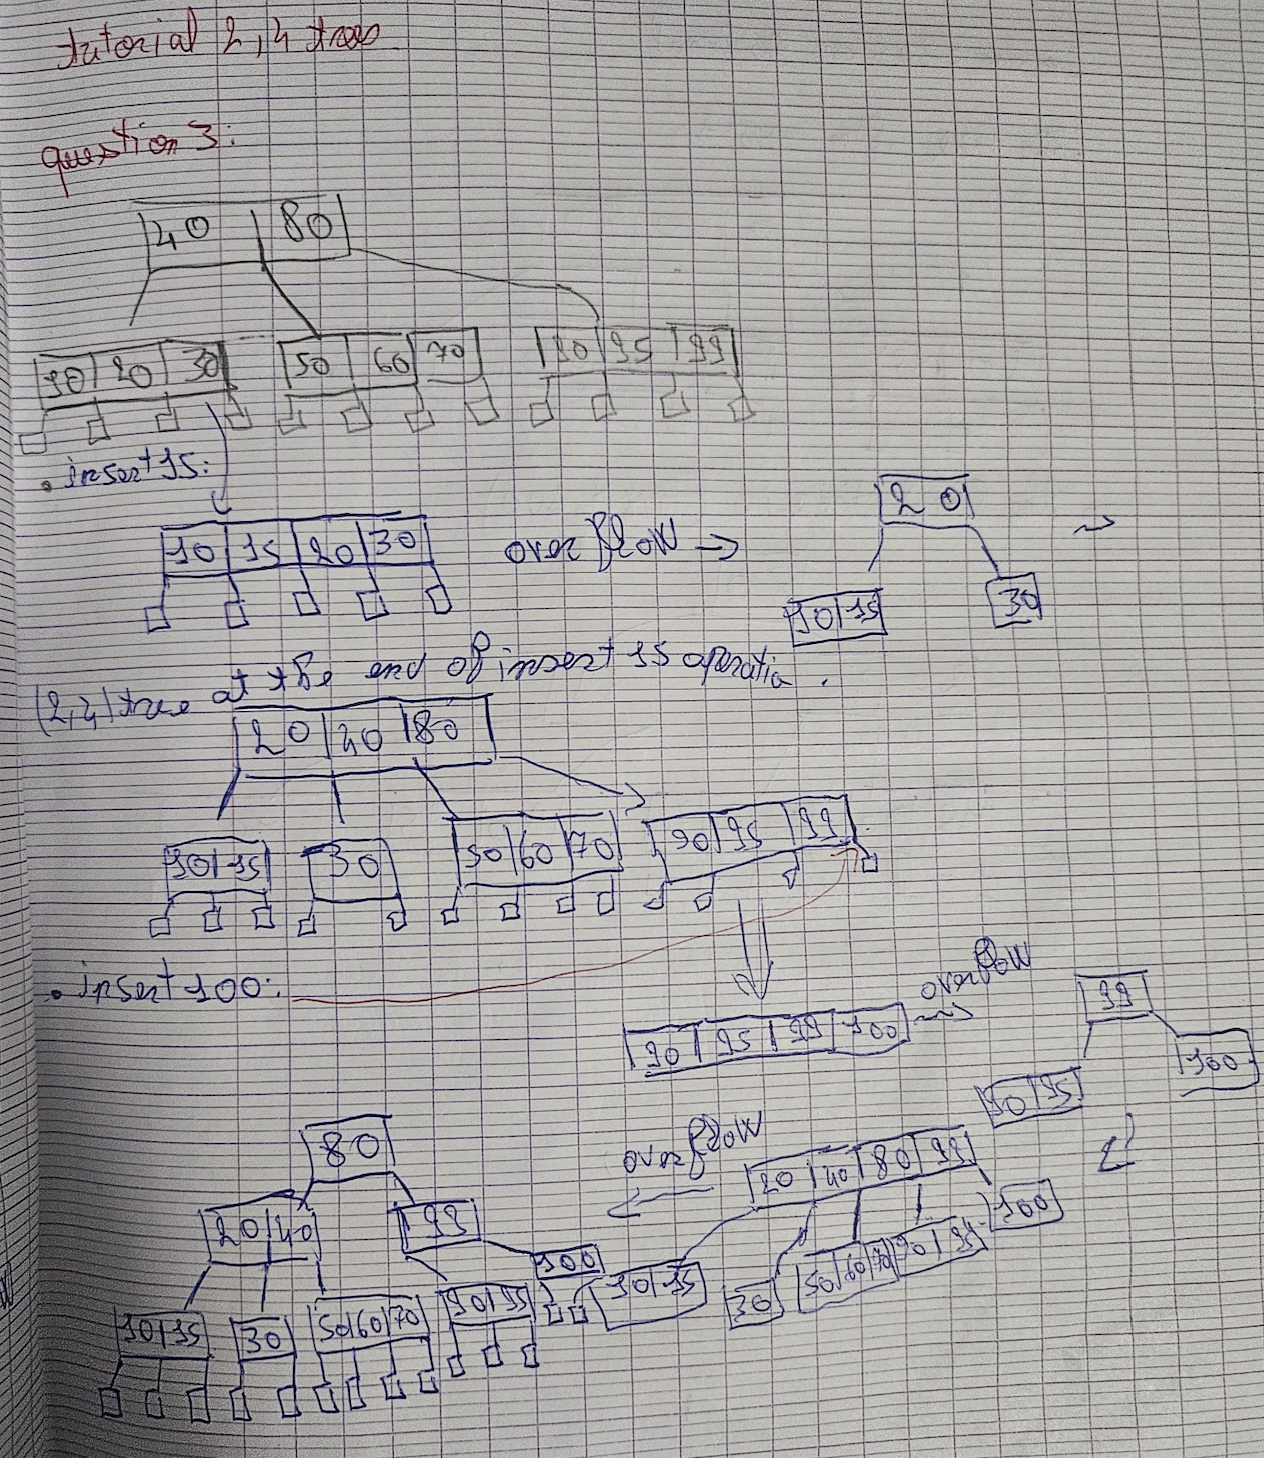 tutorial 2,4 trees
question 3:
40 80
10 20 30 50 60 70 90 95 99
• insert 15:
20
10 15 20 30 overflow →
10 15 30
(2,4) tree at the end of insert 15 operatio .
20 40 80
10 15 30 50 60 70 90 95 99
• insert 100:
overflow
99
90 95 99 100
100
90 95
80
overflow
20 40 80 99
20 40 99
100
100
10 15 30 50 60 70 90 95
10 15 30 50 60 70 90 95